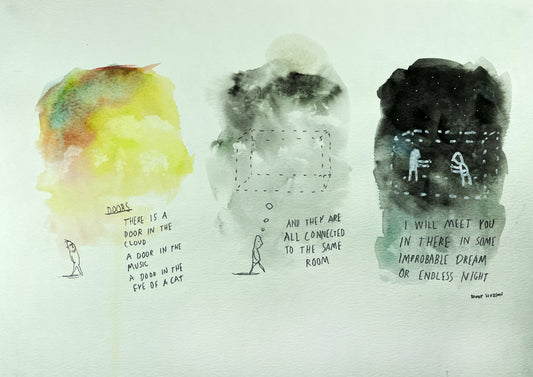 DOORS
THERE IS A
DOOR IN THE
CLOUD
A DOOR IN THE
MUSIC
A DOOR IN THE
EYE OF A CAT
AND THEY ARE
ALL CONNECTED
TO THE SAME
ROOM
I WILL MEET YOU
IN THERE IN SOME
IMPROBABLE DREAM
OR ENDLESS NIGHT